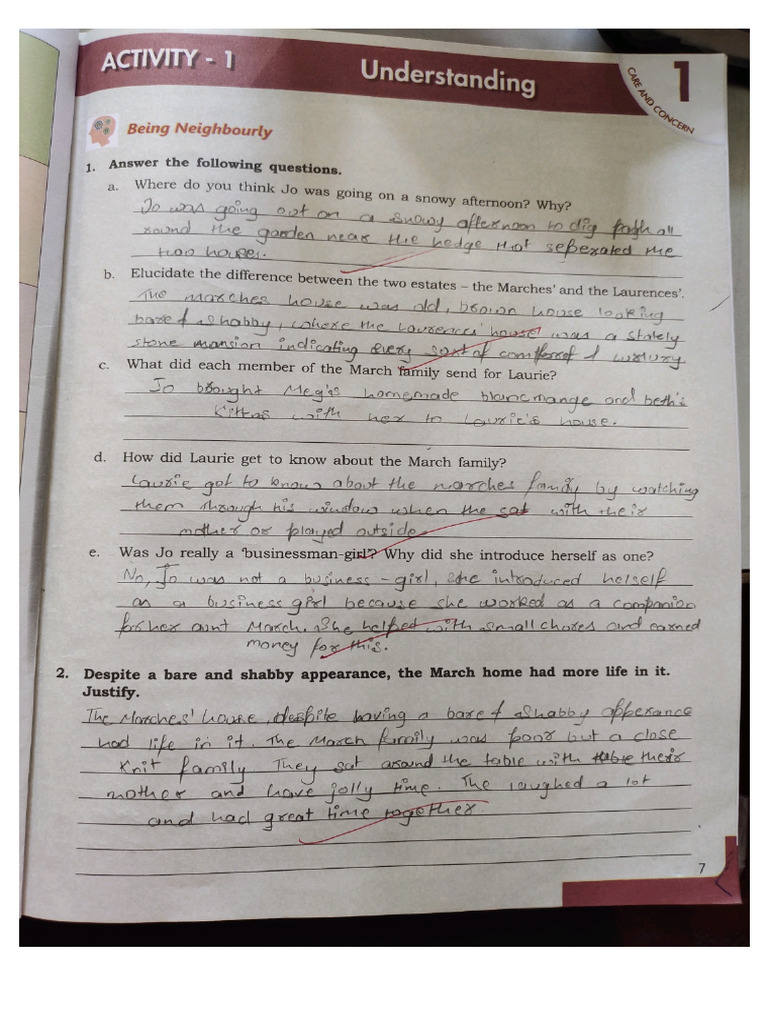 ACTIVITY - 1
Understanding
1
CARE AND CONCERN
Being Neighbourly
1. Answer the following questions.
a. Where do you think Jo was going on a snowy afternoon? Why?
Jo was going out on a snowy afternoon to dig path all
round the garden near the hedge that seperated the
two houses.
b. Elucidate the difference between the two estates – the Marches' and the Laurences'.
The marches house was old, brown house looking
bare & shabby, where the Laurences' house was a stately
stone mansion indicating every sort of comfort & luxury
c. What did each member of the March family send for Laurie?
Jo brought Meg's homemade blancmange and beth's
kittns with her to Laurie's house.
d. How did Laurie get to know about the March family?
Laurie got to know about the marches family by watching
them through his window when the sat with their
mother or played outside.
e. Was Jo really a 'businessman-girl'? Why did she introduce herself as one?
No, Jo was not a business-girl, She introduced helself
as a business girl because she worked as a companion
for her aunt March. She helped with small chores and earned
money for this.
2. Despite a bare and shabby appearance, the March home had more life in it.
Justify.
The Marches' house, despite having a bare & shabby apperance
had life in it. The March family was poor but a close
knit family They sat around the table with their
mother and have jolly time. The laughed a lot
and had great time together.
7